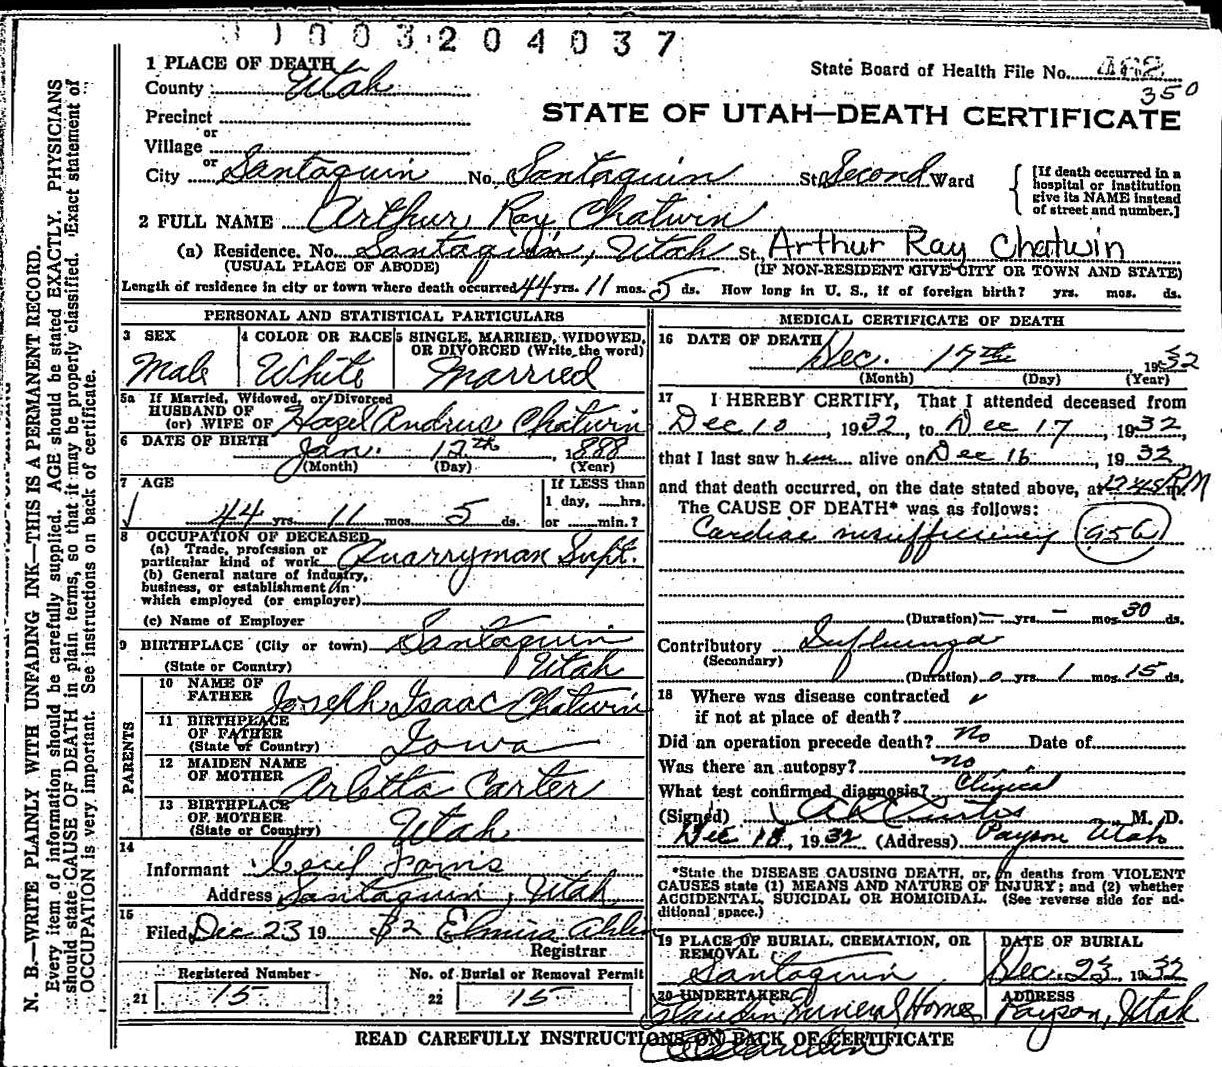 1003204037
1 PLACE OF DEATH
County Utah
State Board of Health File No. 482
350
Precinct
or
Village
or
STATE OF UTAH—DEATH CERTIFICATE
City Santaquin No. Santaquin St. Second Ward
[If death occurred in a hospital or institution give its NAME instead of street and number.]
2 FULL NAME Arthur Ray Chatwin
(a) Residence. No. Santaquin, Utah St. Arthur Ray Chatwin
(USUAL PLACE OF ABODE) (IF NON-RESIDENT GIVE CITY OR TOWN AND STATE)
Length of residence in city or town where death occurred 44 yrs. 11 mos. 5 ds. How long in U. S., if of foreign birth? yrs. mos. ds.
PERSONAL AND STATISTICAL PARTICULARS
3 SEX
Male
4 COLOR OR RACE
White
5 SINGLE, MARRIED, WIDOWED, OR DIVORCED (Write the word)
Married
5a If Married, Widowed, or Divorced
HUSBAND OF
(or) WIFE OF Hazel Andrus Chatwin
6 DATE OF BIRTH
Jan. 12th, 1888
(Month) (Day) (Year)
7 AGE
44 yrs. 11 mos. 5 ds.
If LESS than
1 day, hrs.
or min.?
8 OCCUPATION OF DECEASED
(a) Trade, profession or
particular kind of work Quarryman Supt.
(b) General nature of industry,
business, or establishment in
which employed (or employer)
(c) Name of Employer
9 BIRTHPLACE (City or town) Santaquin
(State or Country) Utah
PARENTS
10 NAME OF
FATHER Joseph Isaac Chatwin
11 BIRTHPLACE
OF FATHER
(State or Country) Iowa
12 MAIDEN NAME
OF MOTHER Arletta Carter
13 BIRTHPLACE
OF MOTHER
(State or Country) Utah
14
Informant Cecil
Address Santaquin, Utah
15
Filed Dec 23 19 32 Elmira Ahlin
Registrar
Registered Number
21 15
No. of Burial or Removal Permit
22 15
MEDICAL CERTIFICATE OF DEATH
16 DATE OF DEATH
Dec. 17th 1932
(Month) (Day) (Year)
17 I HEREBY CERTIFY, That I attended deceased from
Dec 10, 1932, to Dec 17, 1932,
that I last saw him alive on Dec 16, 1932
and that death occurred, on the date stated above, at 12 45 P.M
The CAUSE OF DEATH* was as follows:
Cardiac insufficiency 95b
(Duration) — yrs. — mos. 30 ds.
Contributory Influenza
(Secondary)
(Duration) 0 yrs. 1 mos. 15 ds.
18 Where was disease contracted
if not at place of death?
Did an operation precede death? No Date of
Was there an autopsy? no
What test confirmed diagnosis? Clinical
(Signed) A K Curtis M. D.
Dec 18, 1932 (Address) Payson Utah
*State the DISEASE CAUSING DEATH, or, in deaths from VIOLENT
CAUSES state (1) MEANS AND NATURE OF INJURY; and (2) whether
ACCIDENTAL, SUICIDAL OR HOMICIDAL. (See reverse side for ad-
ditional space.)
19 PLACE OF BURIAL, CREMATION, OR
REMOVAL
Santaquin
DATE OF BURIAL
Dec. 23 1932
20 UNDERTAKER
Claudin Funeral Home
ADDRESS
Payson, Utah
READ CAREFULLY INSTRUCTIONS ON BACK OF CERTIFICATE
N. B.—WRITE PLAINLY WITH UNFADING INK—THIS IS A PERMANENT RECORD.
Every item of information should be carefully supplied. AGE should be stated EXACTLY. PHYSICIANS
should state CAUSE OF DEATH in plain terms, so that it may be properly classified. Exact statement of
OCCUPATION is very important. See instructions on back of certificate.